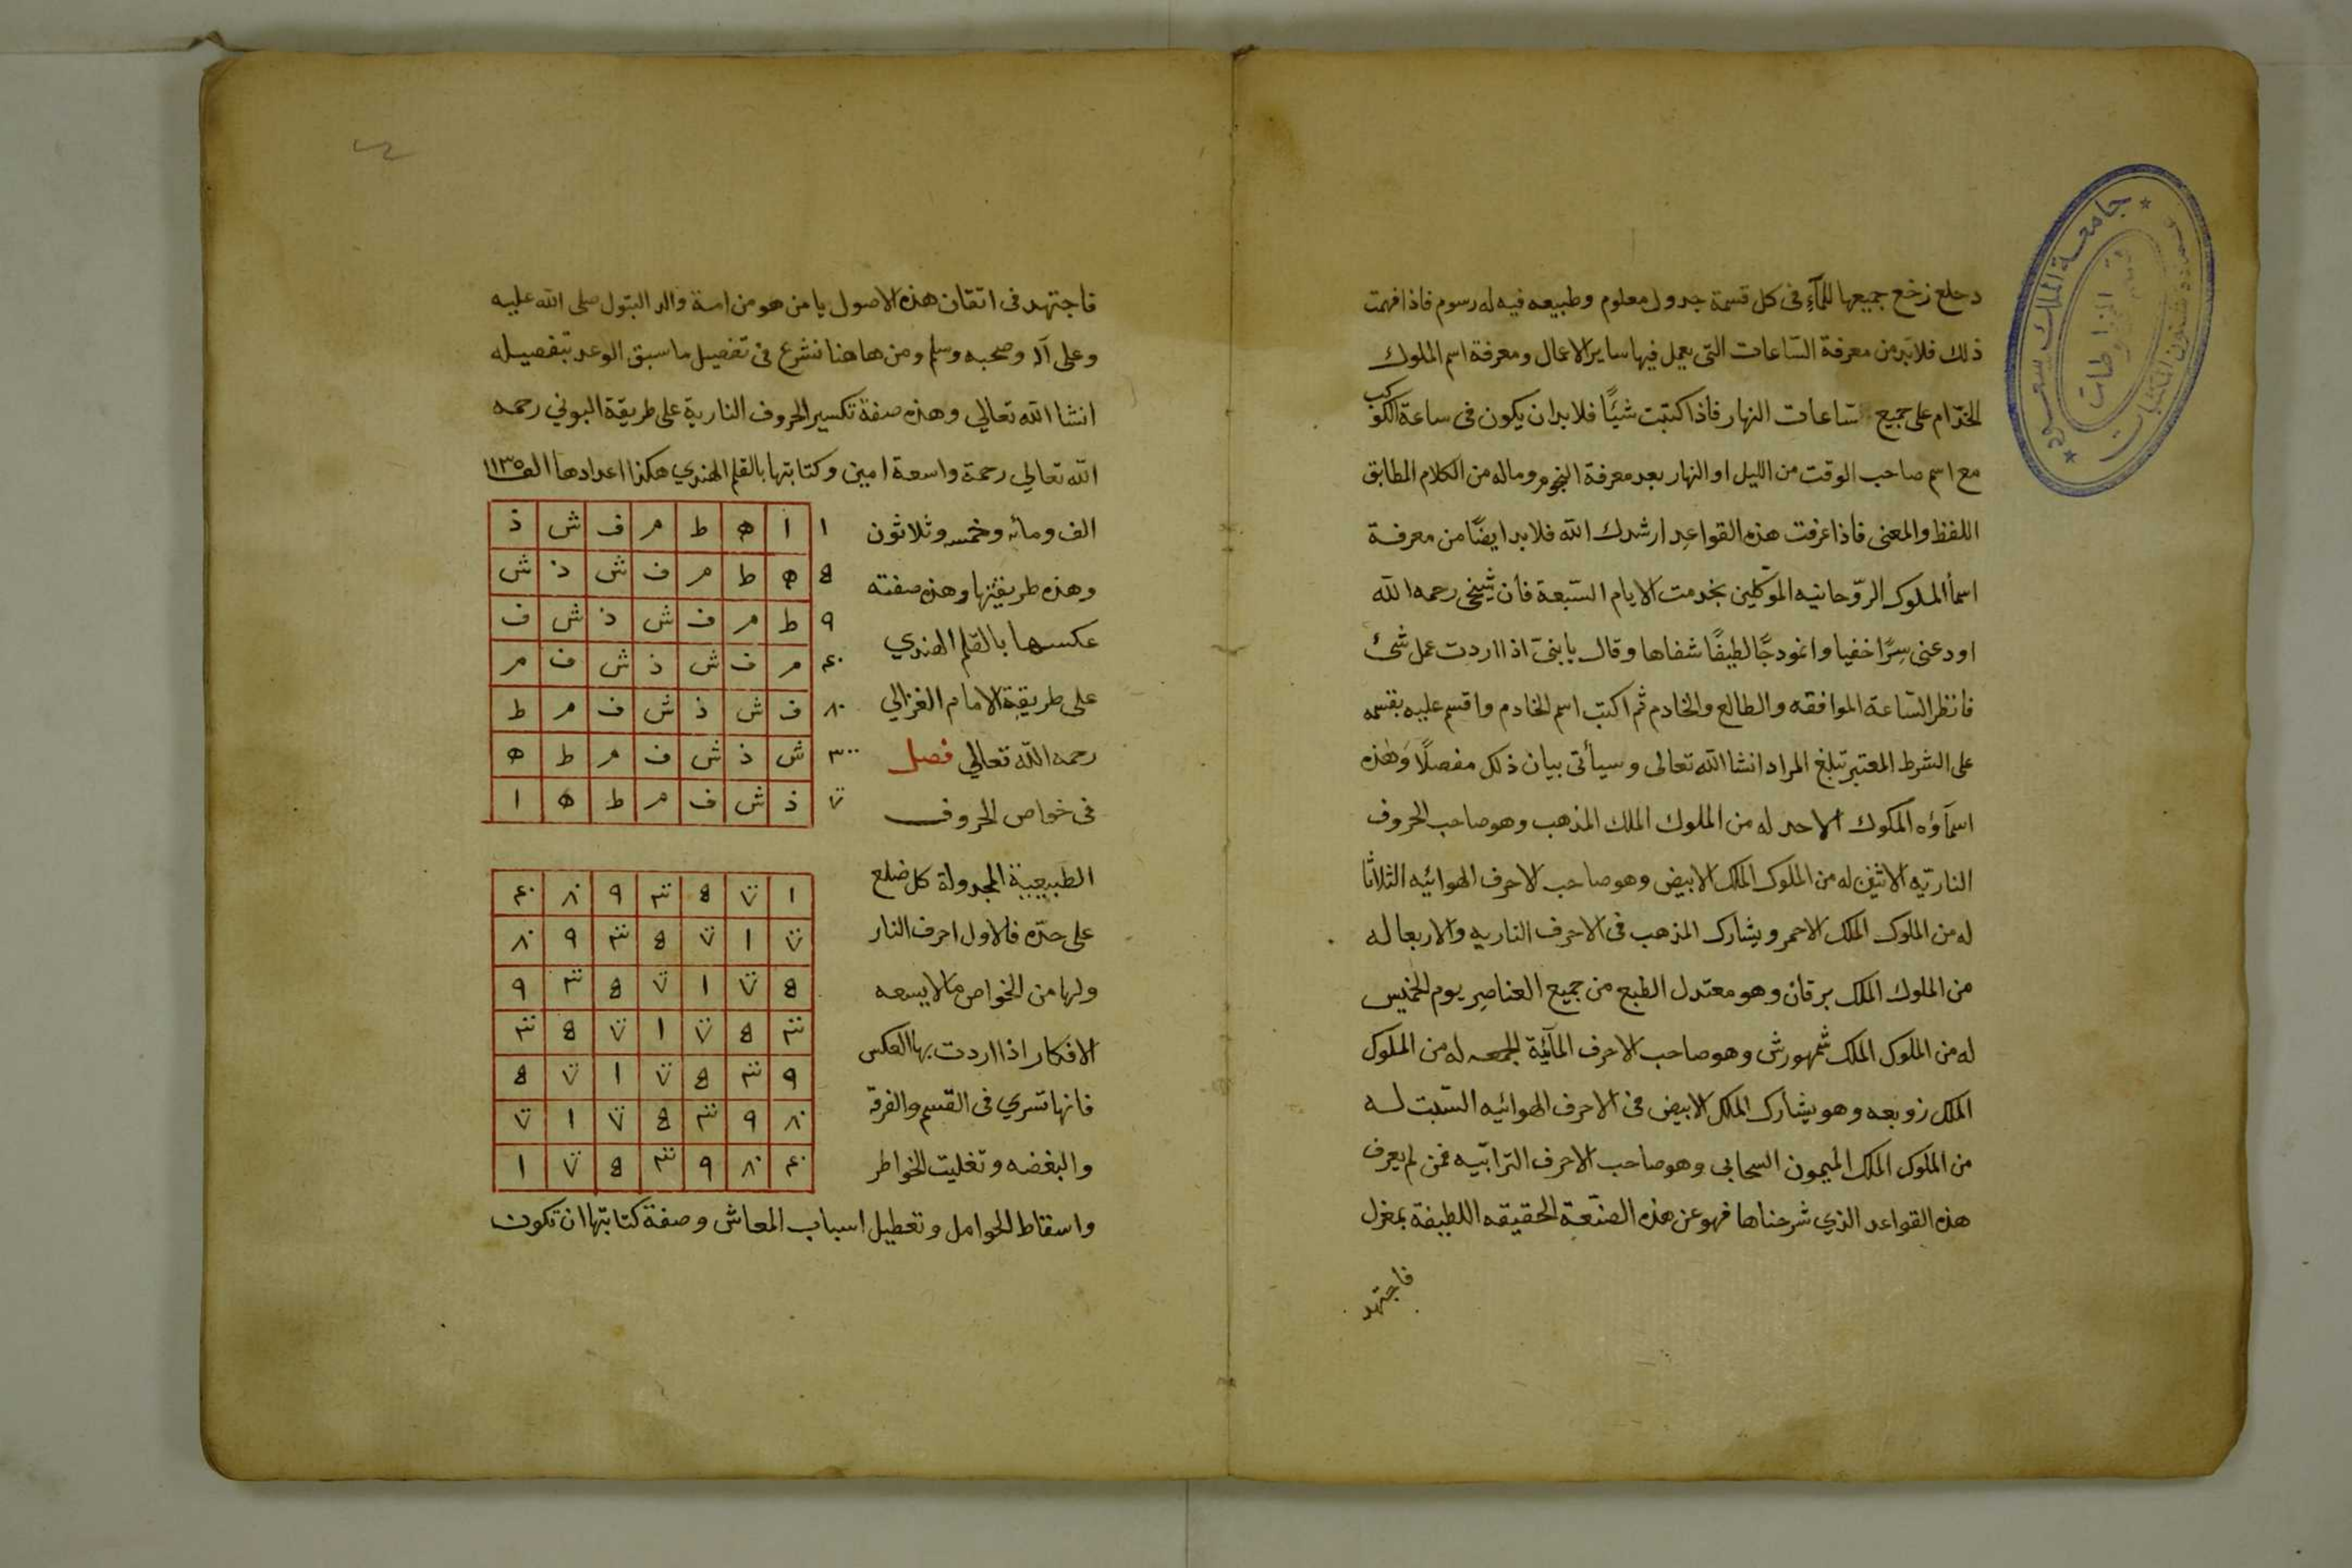 دحلع زخغ جميعها للمآء فى كل قسمة جدول معلوم وطبيعه فيه له رسوم فاذا فهمت
ذلك فلابد من معرفة الساعات التى يعمل فيها ساير الاعمال ومعرفة اسم الملوك
الخدّام على جميع ساعات النهار فاذا كتبت شيئًا فلابد ان يكون فى ساعة الكوكب
مع اسم صاحب الوقت من الليل او النهار بعد معرفة النجوم وماله من الكلام المطابق
اللفظ والمعنى فاذا عرفت هذه القواعد ارشدك الله فلابد ايضًا من معرفة
اسمأ الملوك الرّوحانيه الموكلين بخدمت الايام السّبعة فان شيخى رحمه الله
اودعنى سِرًا خفيا وانموذجًا لطيفًا شفاها وقال يا بنىّ اذا اردت عمل شئ
فانظر السّاعة الموافقه والطالع والخادم ثم اكتب اسم الخادم واقسم عليه بقسمه
على الشرط المعتبر تبلغ المراد انشا الله تعالى وسيأتى بيان ذلك مفصلًا وهٰذه
اسمآؤه الملوك الاحد له من الملوك الملك المذهب وهو صاحب الحروف
الناريّه الاثنين له من الملوك الملك الابيض وهو صاحب الاحرف الهوائيه الثلاثا
له من الملوك الملك الاحمر ويشارك المذهب فى الاحرف الناريه والاربعا له
من الملوك الملك برقان وهو معتدل الطبع من جميع العناصر يوم الخميس
له من الملوك الملك شمهورش وهو صاحب الاحرف المآئيّة الجمعه له من الملوك
الملك زوبعه وهو يشارك الملك الابيض فى الاحرف الهوائيه السّبت له
من الملوك الملك الميمون السحابى وهو صاحب الاحرف الترابيّه فمن لم يعرف
هذه القواعد الذي شرحناها فهو عن هذه الصنّعة الحقيقه اللطيفة بمعزل
فاجتهد
جامعة الملك سعود
عمادة شئون المكتبات
قسم المخطوطات
فاجتهد فى اتقان هذه الاصول يا من هو من امة والد البتول صلى الله عليه
وعلى آله وصحبه وسلم ومن هاهنا نشرع فى تفصيل ما سبق الوعد بتفصيله
انشا الله تعالي وهذه صفة تكسير الحروف النارية على طريقة البوني رحمه
الله تعالي رحمة واسعة امين وكتابتها بالقلم الهندي هكذا اعدادها الف ١١٣٥
الف ومائه وخمسه وثلاثون
وهذه طريقتها وهذه صفته
عكسها بالقلم الهندي
على طريقة الامام الغزالي
رحمه الله تعالي فصل
فى خواص الحروف
١ ا ه ط م ف ش ذ
8 ه ط م ف ش ذ ش
٩ ط م ف ش ذ ش ف
٤٠ م ف ش ذ ش ف م
٨٠ ف ش ذ ش ف م ط
٣٠٠ ش ذ ش ف م ط ه
٧٠٠ ذ ش ف م ط ه ا
الطبيعية المجدولة كل ضلع
على حدّه فالاول احرف النار
ولها من الخواص ما لا يسعه
الافكار اذا اردت بها العكس
فانها تسري فى القسم والفرقة
والبغضه وتغليت الخواطر
١ ٧٠٠ 8 ٣٠٠ ٩ ٨٠ ٤٠
٧٠٠ ١ ٧٠٠ 8 ٣٠٠ ٩ ٨٠
8 ٧٠٠ ١ ٧٠٠ 8 ٣٠٠ ٩
٣٠٠ 8 ٧٠٠ ١ ٧٠٠ 8 ٣٠٠
٩ ٣٠٠ 8 ٧٠٠ ١ ٧٠٠ 8
٨٠ ٩ ٣٠٠ 8 ٧٠٠ ١ ٧٠٠
٤٠ ٨٠ ٩ ٣٠٠ 8 ٧٠٠ ١
واسقاط الحوامل وتعطيل اسباب المعاش وصفة كتابتها ان تكون